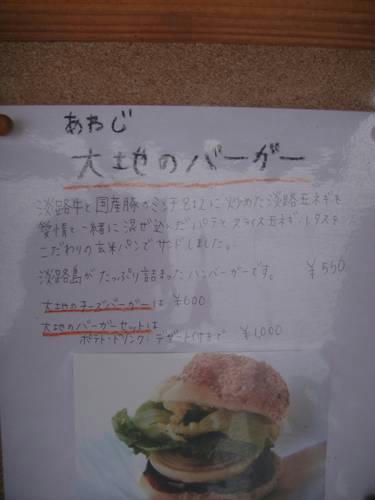 あわじ
大地のバーガー
淡路牛と国産豚のミンチ各々に炒めた淡路玉ネギを
愛情と一緒に混ぜ込んだパテとスライス玉ネギ・レタスを
こだわりの玄米パンでサンドしました。
淡路島がたっぷり詰まったハンバーガーです。 ¥550
大地のチーズバーガーは ¥600
大地のバーガーセットは
ポテト・ドリンク・デザート付きで ¥1,000